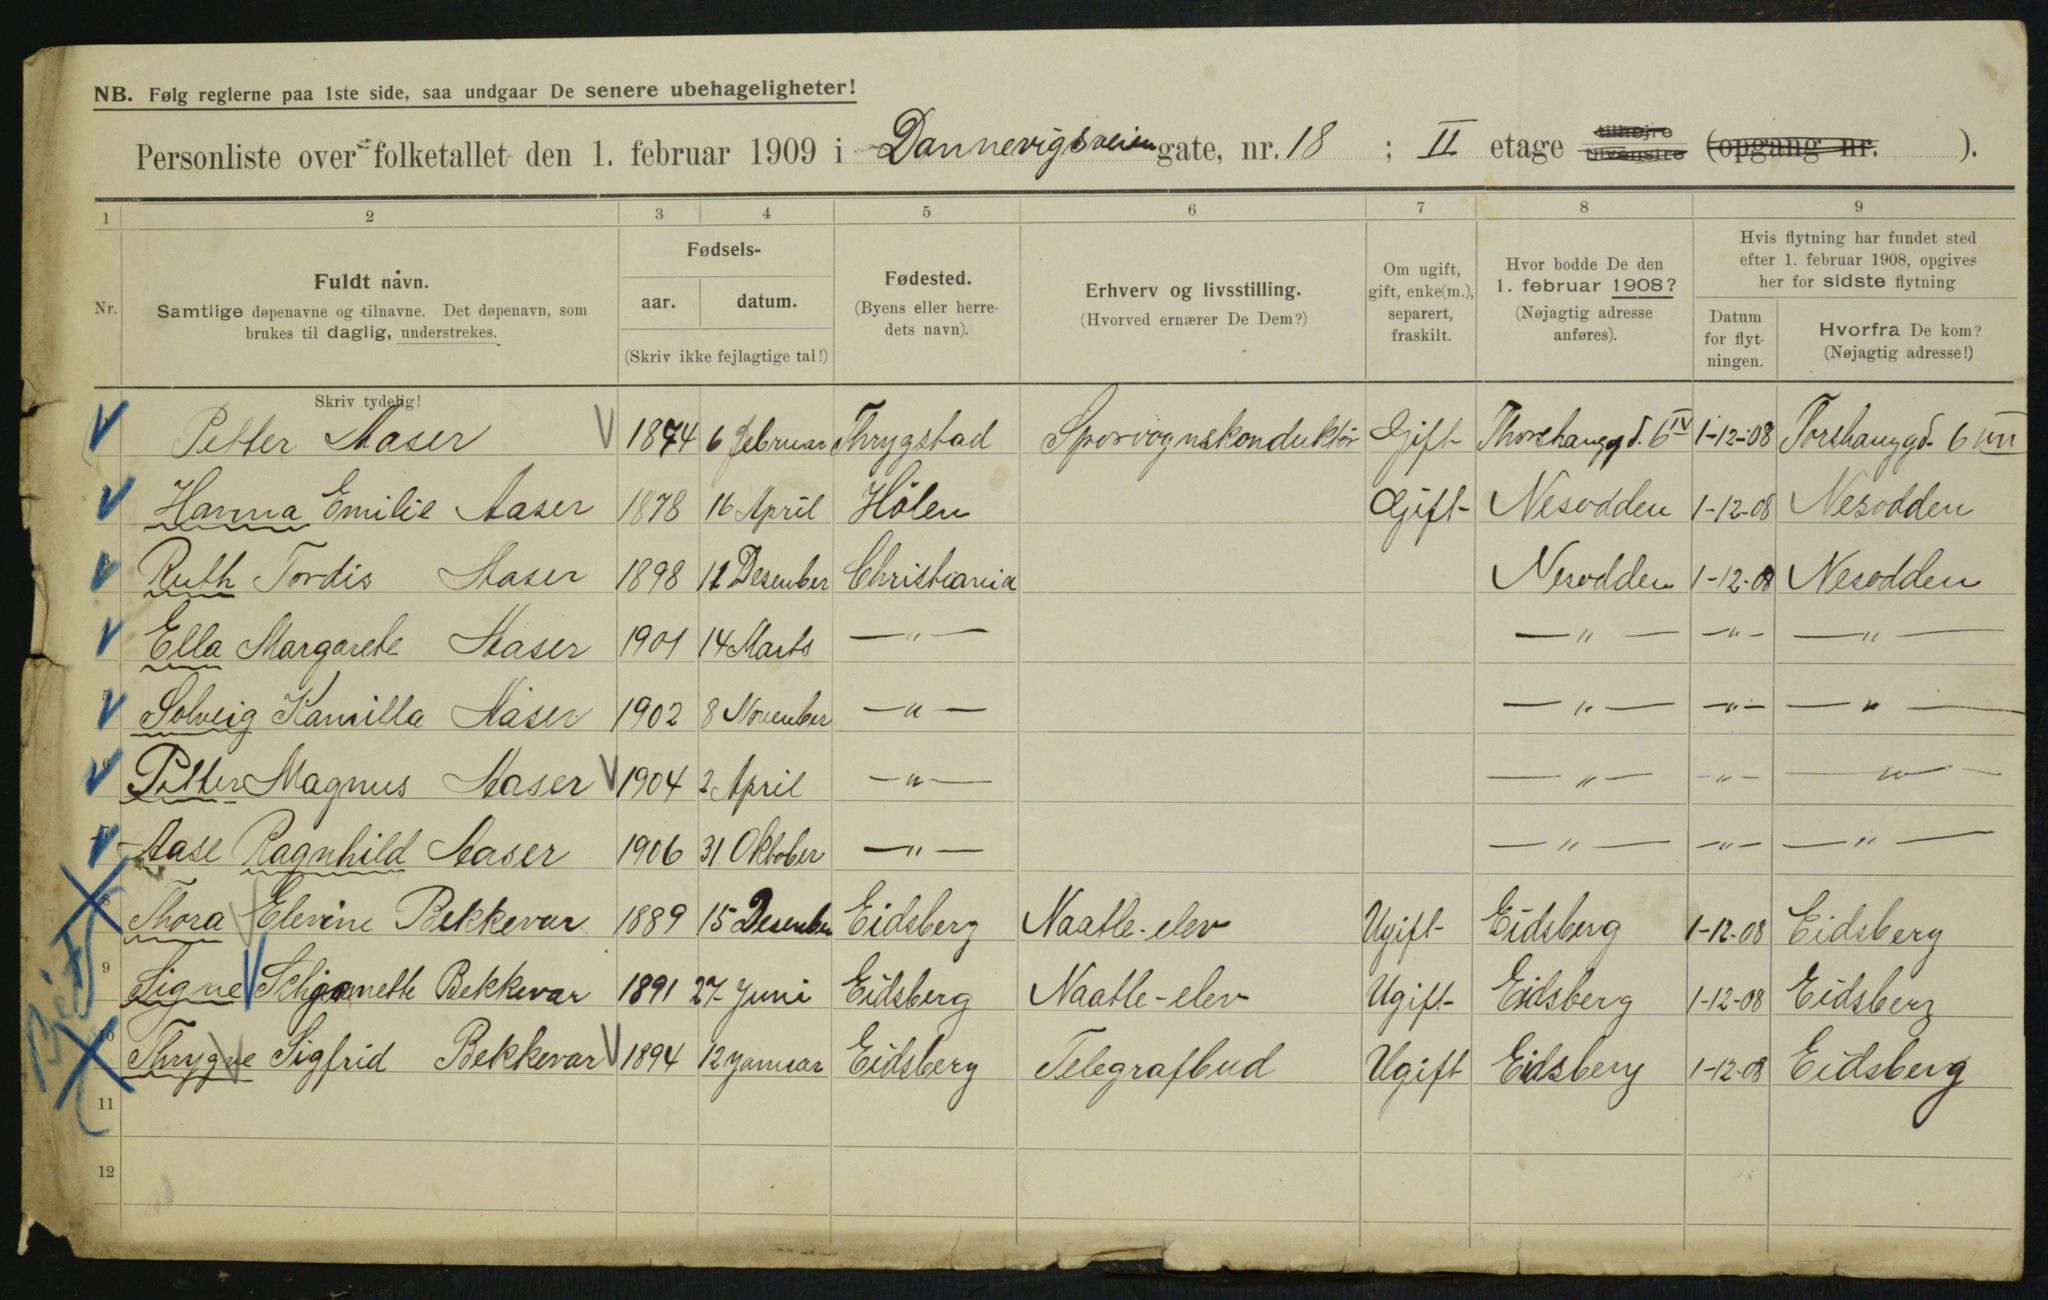 NB. Følg reglerne paa 1ste side, saa undgaar De senere ubehageligheter!
Personliste over folketallet den 1. februar 1909 i Dannevigsveien gate, nr. 18 ; II etage tilhøjre tilvenstre (opgang nr. ).
1 2 3 4 5 6 7 8 9
Nr.
Fuldt navn.
Samtlige døpenavne og tilnavne. Det døpenavn, som
brukes til daglig, understrekes.
Skriv tydelig!
Fødsels-
aar. datum.
(Skriv ikke fejlagtige tal!)
Fødested.
(Byens eller herre-
dets navn).
Erhverv og livsstilling.
(Hvorved ernærer De Dem?)
Om ugift,
gift, enke(m.),
separert,
fraskilt.
Hvor bodde De den
1. februar 1908?
(Nøjagtig adresse
anføres).
Hvis flytning har fundet sted
efter 1. februar 1908, opgives
her for sidste flytning
Datum
for flyt-
ningen.
Hvorfra De kom?
(Nøjagtig adresse!)
Petter Aaser 1874 6 februar Thrygstad Sporvognskonduktør Gift Thorshauggd. 6 IV 1-12-08 Torshauggd. 6
Hanna Emilie Aaser 1878 16 April Hölen Gift Nesodden 1-12-08 Nesodden
3 Ruth Tordis Aaser 1898 12 Desember Christiania Nesodden 1-12-08 Nesodden
Ella Margarete Aaser 1901 14 Marts —"— —"— —"— —"—
5 Solveig Kamilla Aaser 1902 8 November —"— —"— —"— —"—
6 Petter Magnus Aaser 1904 2 April —"— —"— —"— —"—
7 Aase Ragnhild Aaser 1906 31 Oktober —"— —"— —"— —"—
8 Thora Elevine Bekkevar 1889 15 Desember Eidsberg Naatle-elev Ugift Eidsberg 1-12-08 Eidsberg
9 Signe Bekkevar 1891 27 Juni Eidsberg Naatle-elev Ugift Eidsberg 1-12-08 Eidsberg
10 Thrygve Sigfrid Bekkevar 1894 12 Januar Eidsberg Telegrafbud Ugift Eidsberg 1-12-08 Eidsberg
11
12